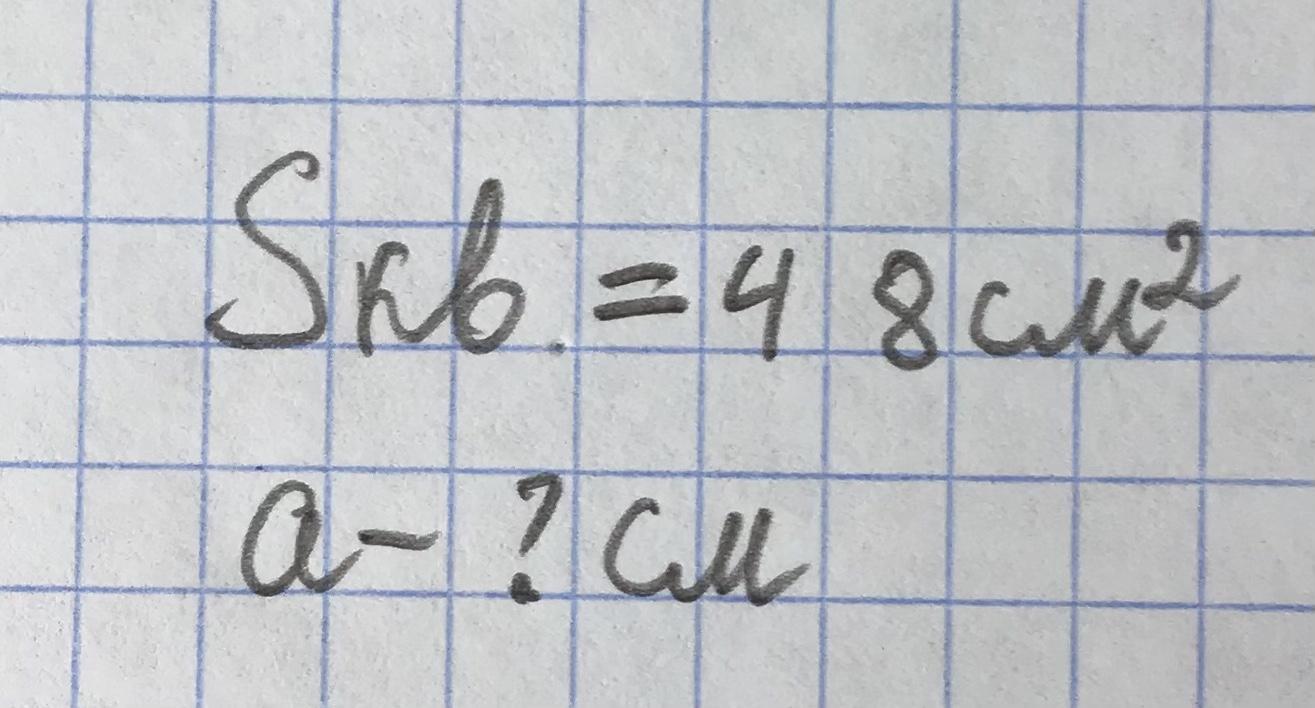 Sкв. = 48 см²
a - ? см